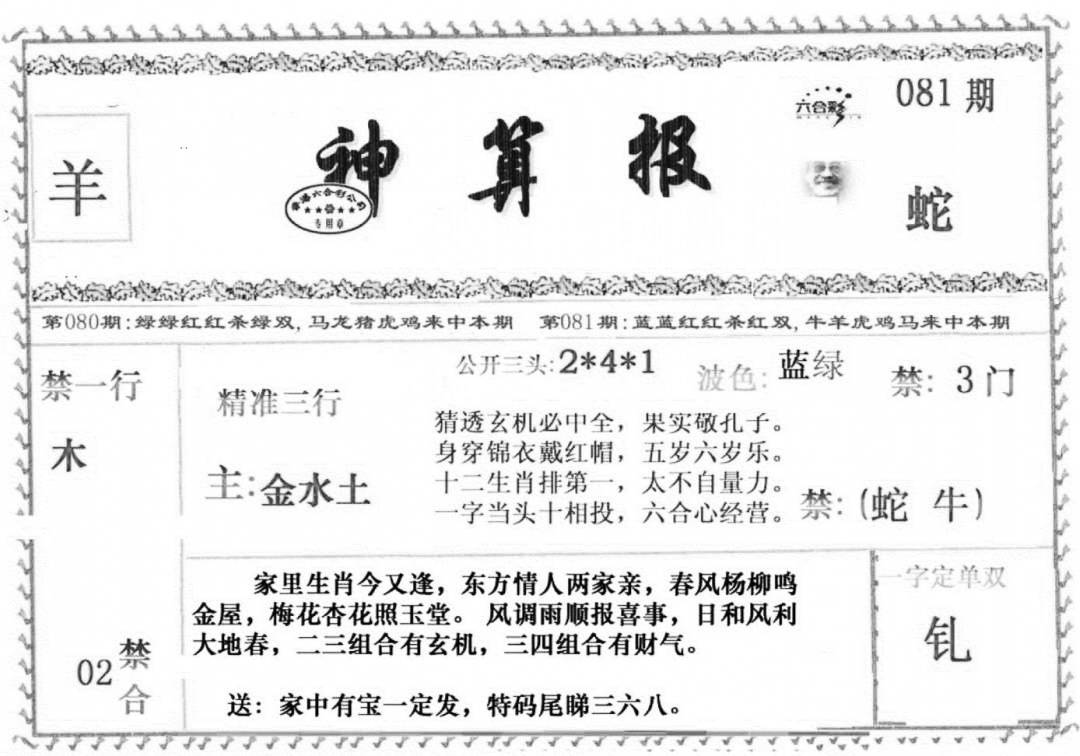 081 期
六合彩
羊
神算报
香港六合彩公司
专用章
蛇
第080期:绿绿红红杀绿双,马龙猪虎鸡来中本期 第081期:蓝蓝红红杀红双,牛羊虎鸡马来中本期
禁一行
木
精准三行
主:金水土
公开三头:2*4*1
波色:蓝绿
禁:3门
猜透玄机必中全，果实敬孔子。
身穿锦衣戴红帽，五岁六岁乐。
十二生肖排第一，太不自量力。
一字当头十相投，六合心经营。
禁:(蛇 牛)
家里生肖今又逢，东方情人两家亲，春风杨柳鸣
金屋，梅花杏花照玉堂。风调雨顺报喜事，日和风利
大地春，二三组合有玄机，三四组合有财气。
送：家中有宝一定发，特码尾睇三六八。
02
禁合
一字定单双
钆